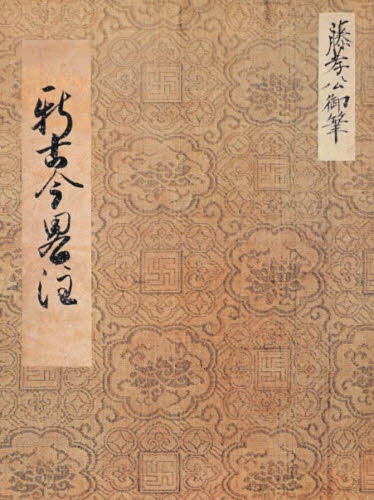 藤孝公御筆
新古今畧注